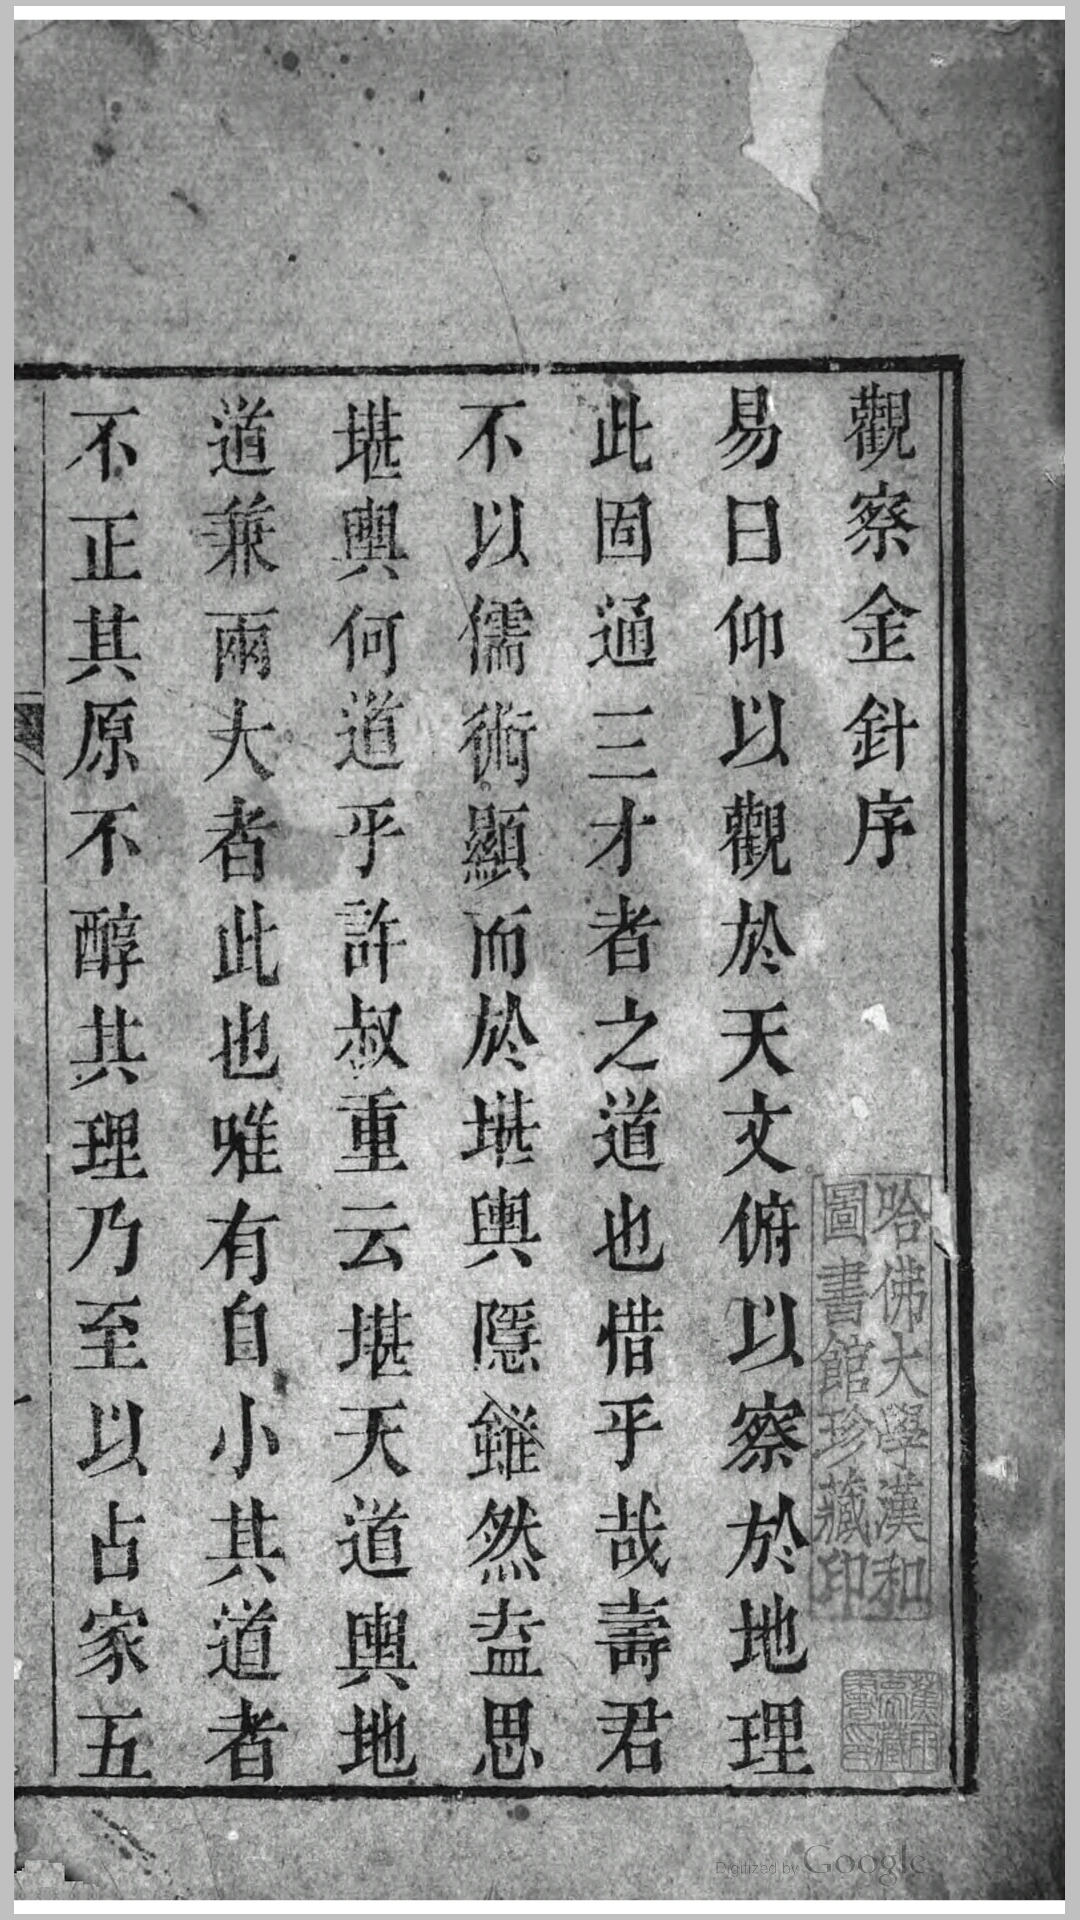 觀察金針序
易曰仰以觀於天文俯以察於地理
此固通三才者之道也惜乎哉壽君
不以儒術顯而於堪輿隱雖然盍思
堪輿何道乎許叔重云堪天道輿地
道兼兩大者此也唯有自小其道者
不正其原不醇其理乃至以占家五
哈佛大學漢和
圖書館珍藏印
Digitized by Google